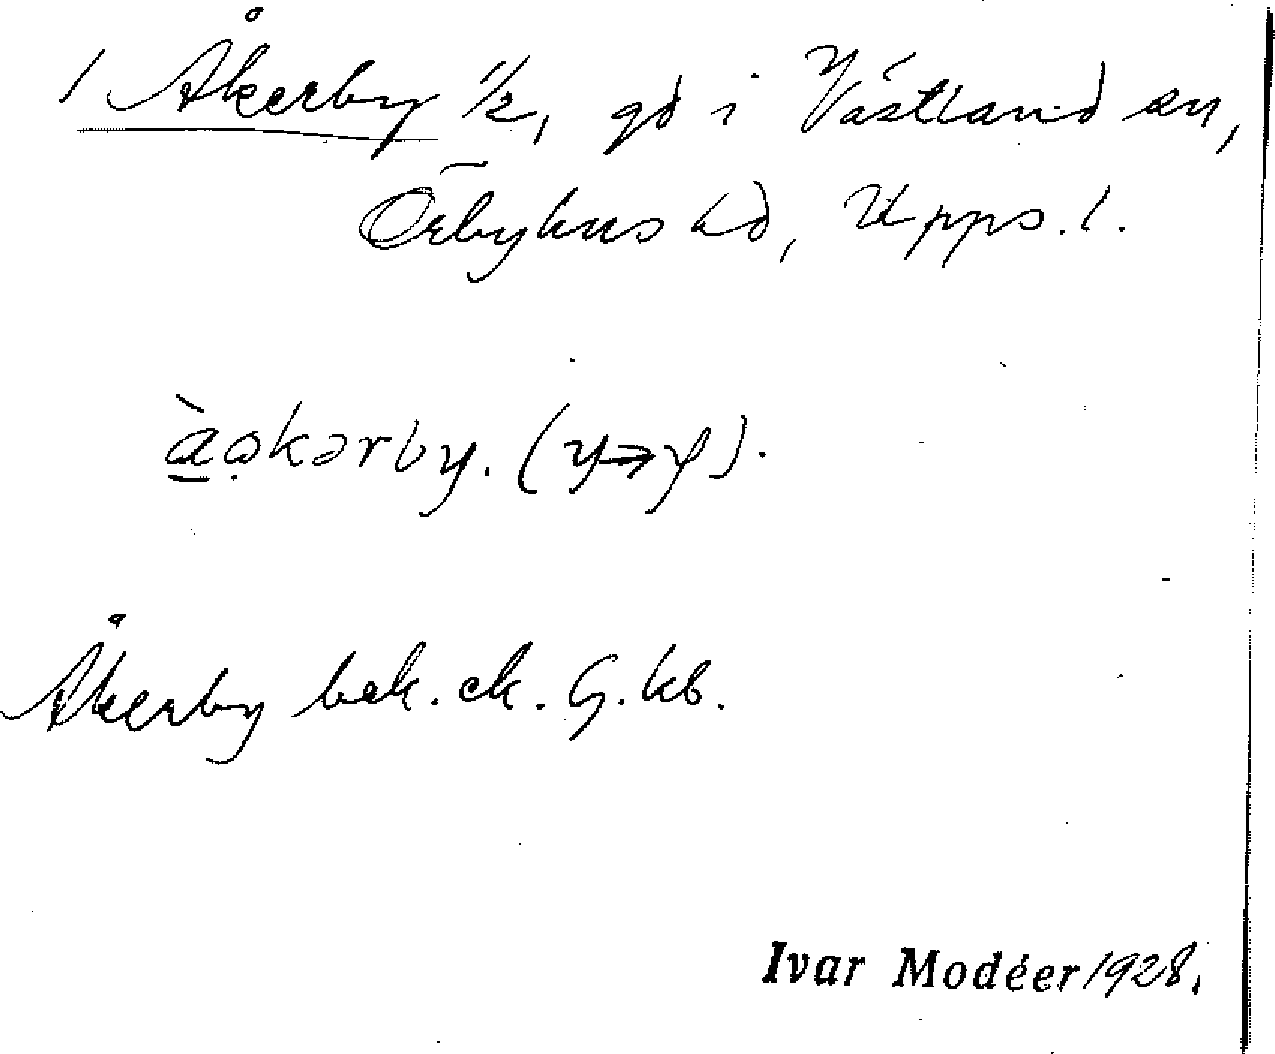 / Åkerby 1/2, gd i Västland sn,
Örbyhus hd, Upps. l.
àǫkərby. (y→ɏ).
Åkerby bek. ek. G. kb.
Ivar Modéer 1928.